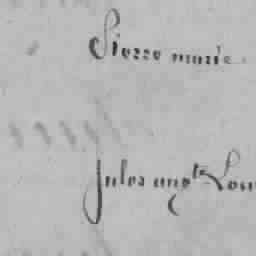 Pierre marie
Jules aug.te Lou